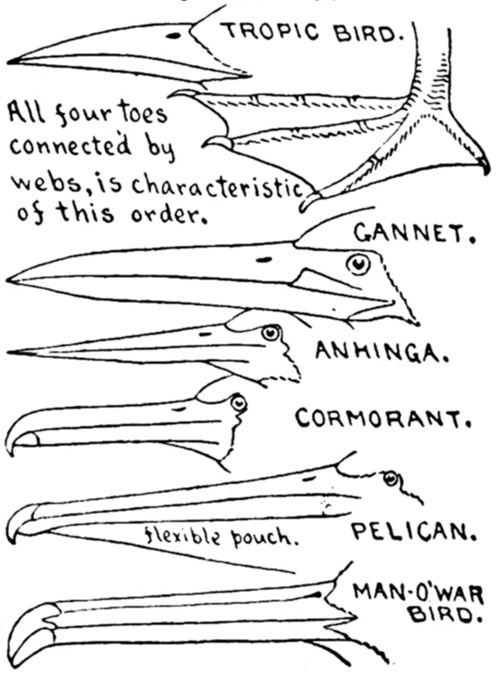 TROPIC BIRD.
All four toes
connected by
webs, is characteristic
of this order.
GANNET.
ANHINGA.
CORMORANT.
flexible pouch.
PELICAN.
MAN-O'WAR
BIRD.